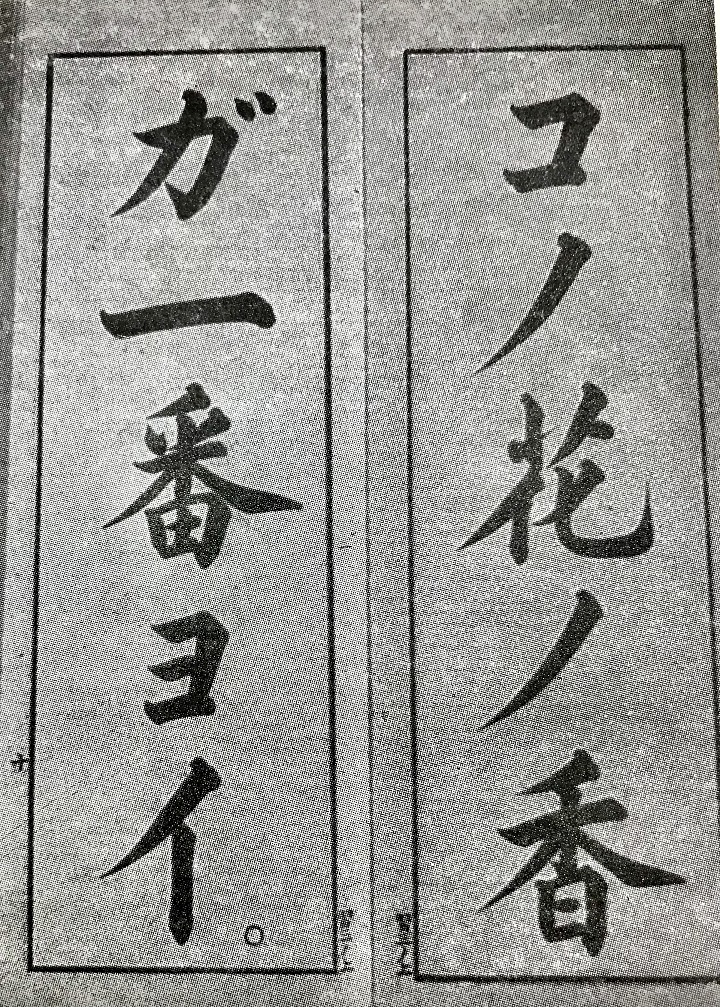 コノ花ノ香
ガ一番ヨイ。